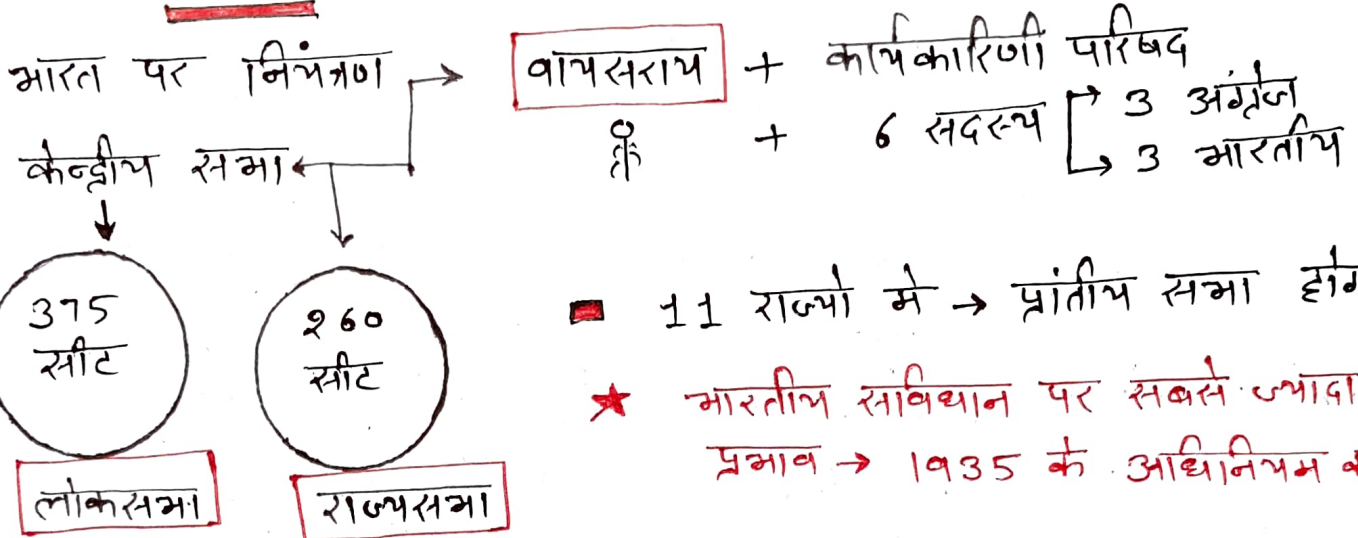 भारत पर नियंत्रण → वायसराय + कार्यकारिणी परिषद
+ 6 सदस्य → 3 अंग्रेज
→ 3 भारतीय
केन्द्रीय सभा
375
सीट
260
सीट
लोकसभा
राज्यसभा
11 राज्यो मे → प्रांतीय सभा
★ भारतीय संविधान पर सबसे ज्यादा
प्रभाव → 1935 के अधिनियम